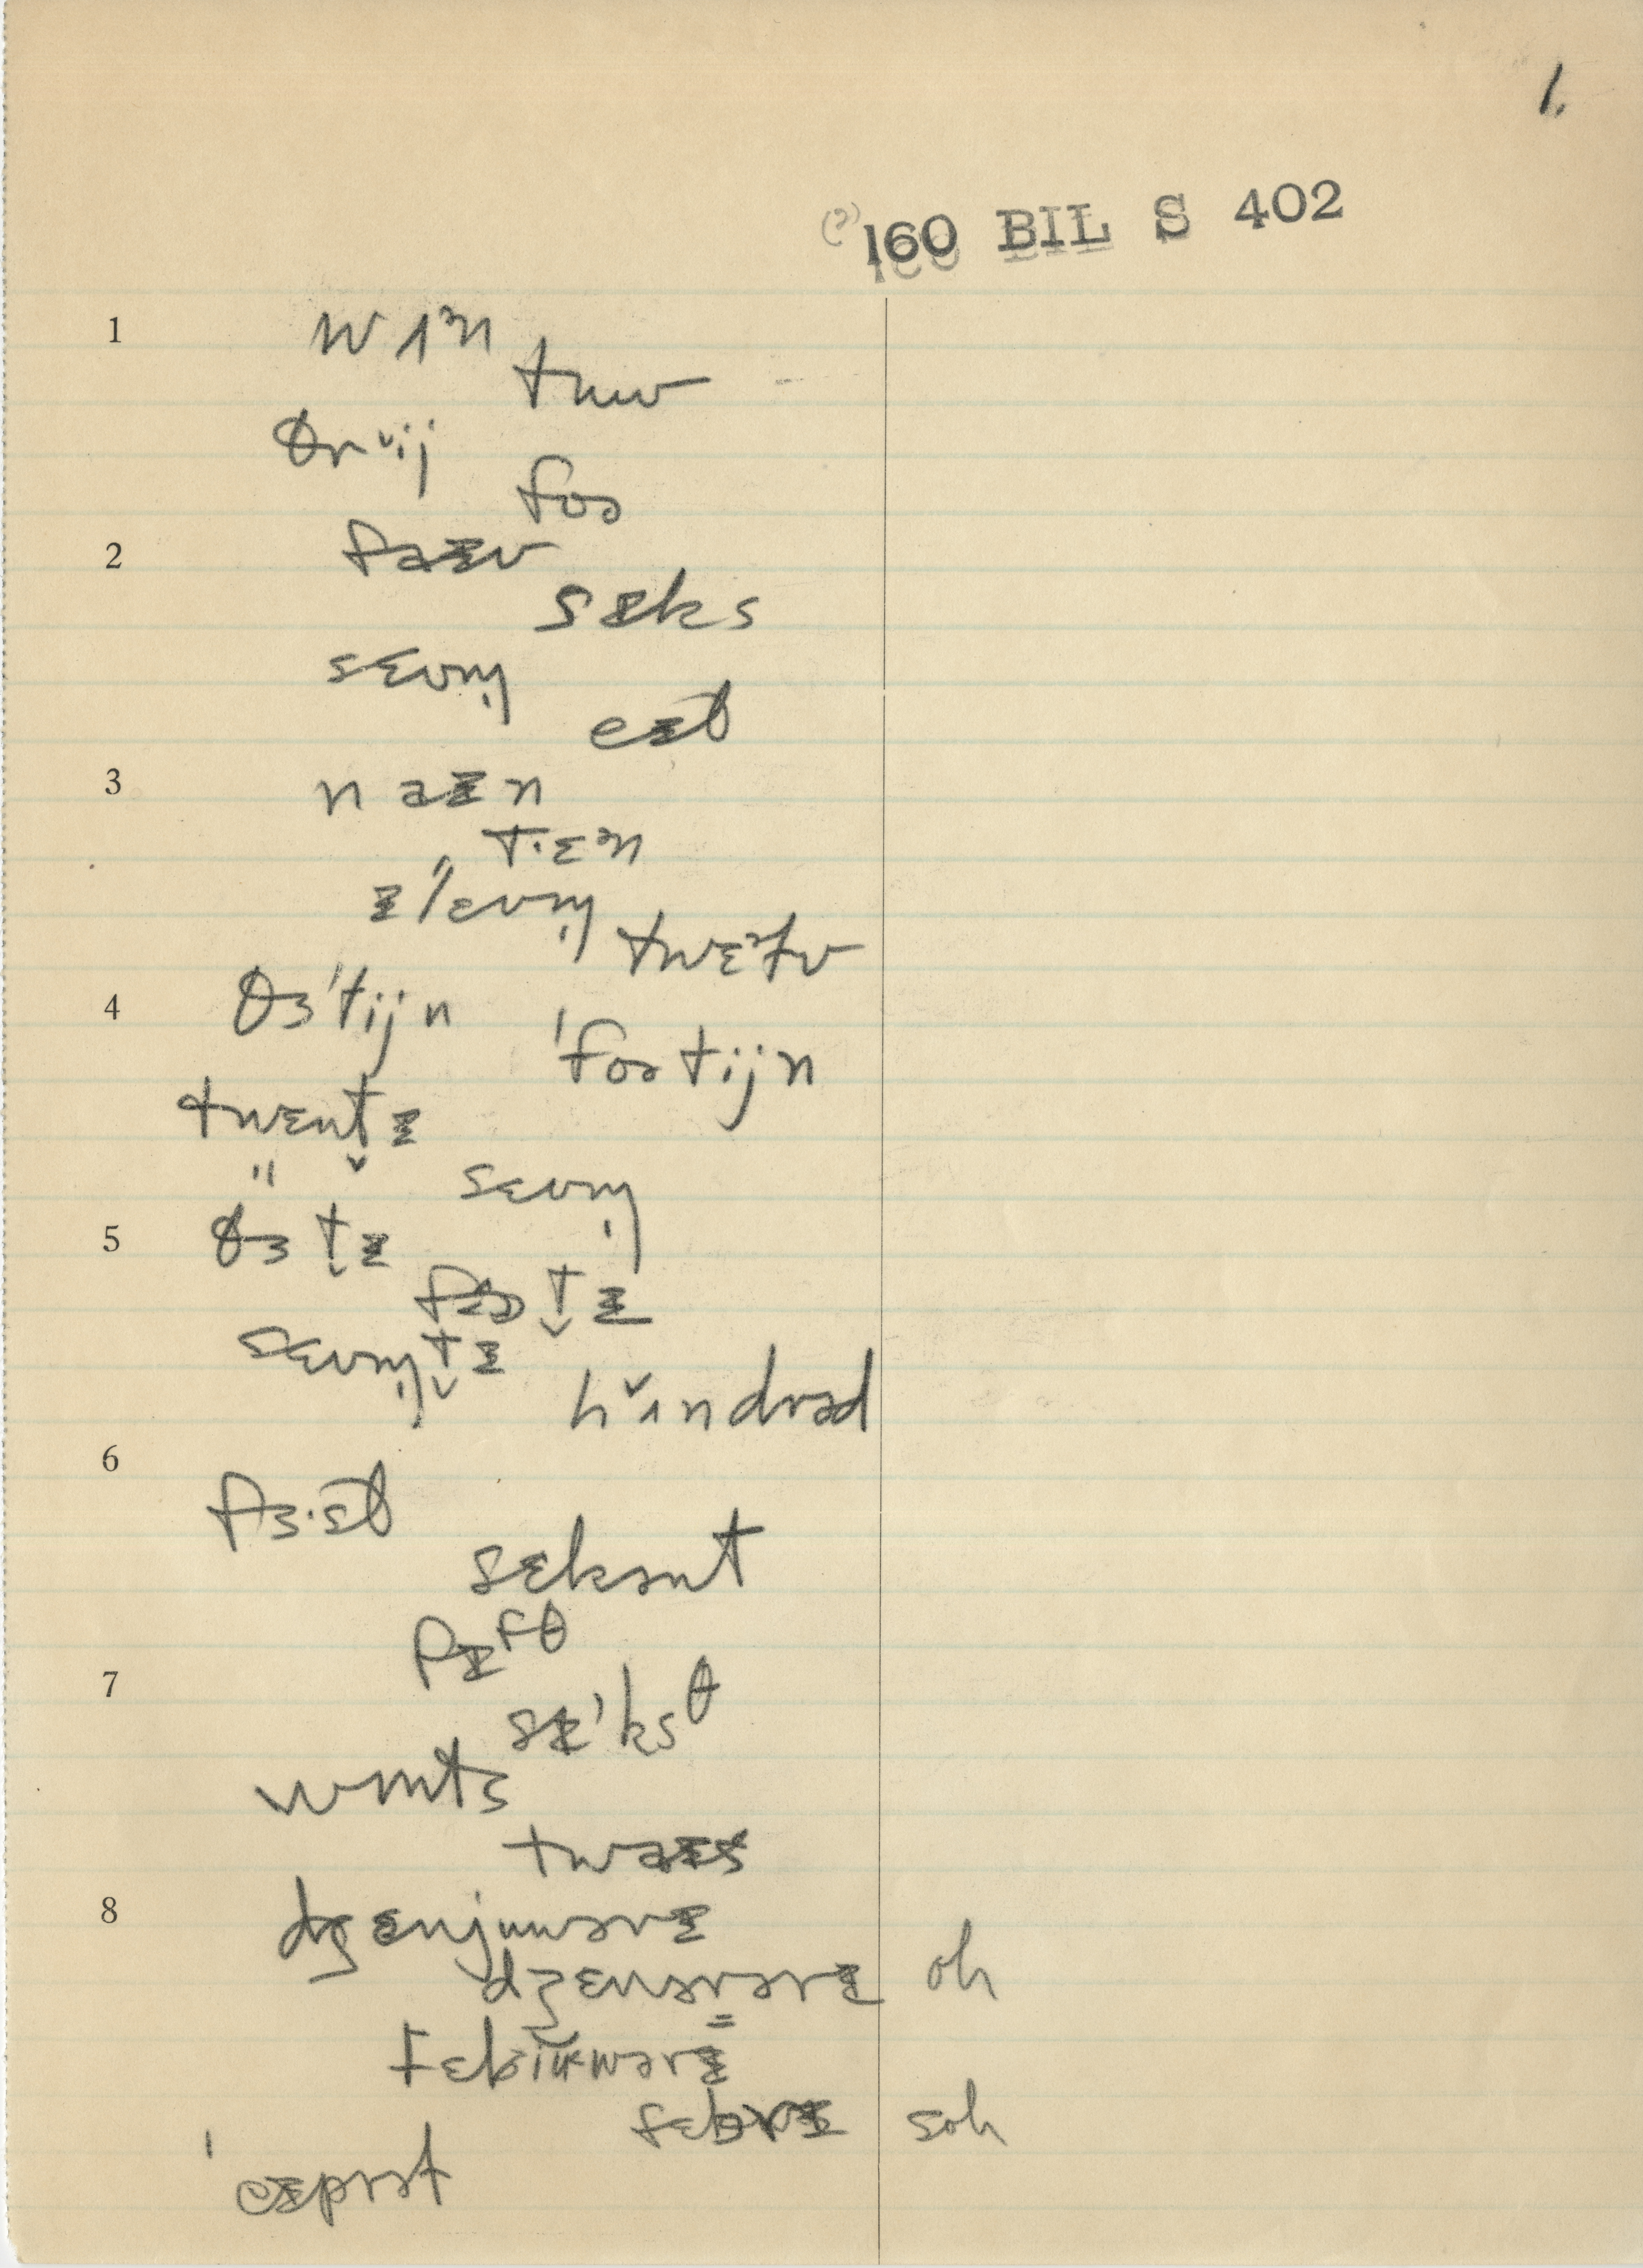 1.
(?) 160 BIL S 402
1 wʌᵊn
tuw
θrᵛij
foə
2 faɪv
sɪks
sɛvm̩
eɪθ
3 naɪn
t·ɛᵊn
ɪˈlɛvm̩
twɛᵊfv
4 θɜˈtijn
ˈfoətijn
twɛnt̬ɪ
" sɛvm̩
5 θɜt̬ɪ
t̬ɪ
sɛvm̩t̬ɪ
hʌ̌ndrəd
6
fɜ·sθ
sɛkənt
7 fɪfθ
sɪ'ksθ
wʌnts
twaɪs
8 dʒɛnjuwərɪ
dʒɛnərərɪ oh
fɛbruwərɪ
fɛbərɪ soh
ˈeɪprət